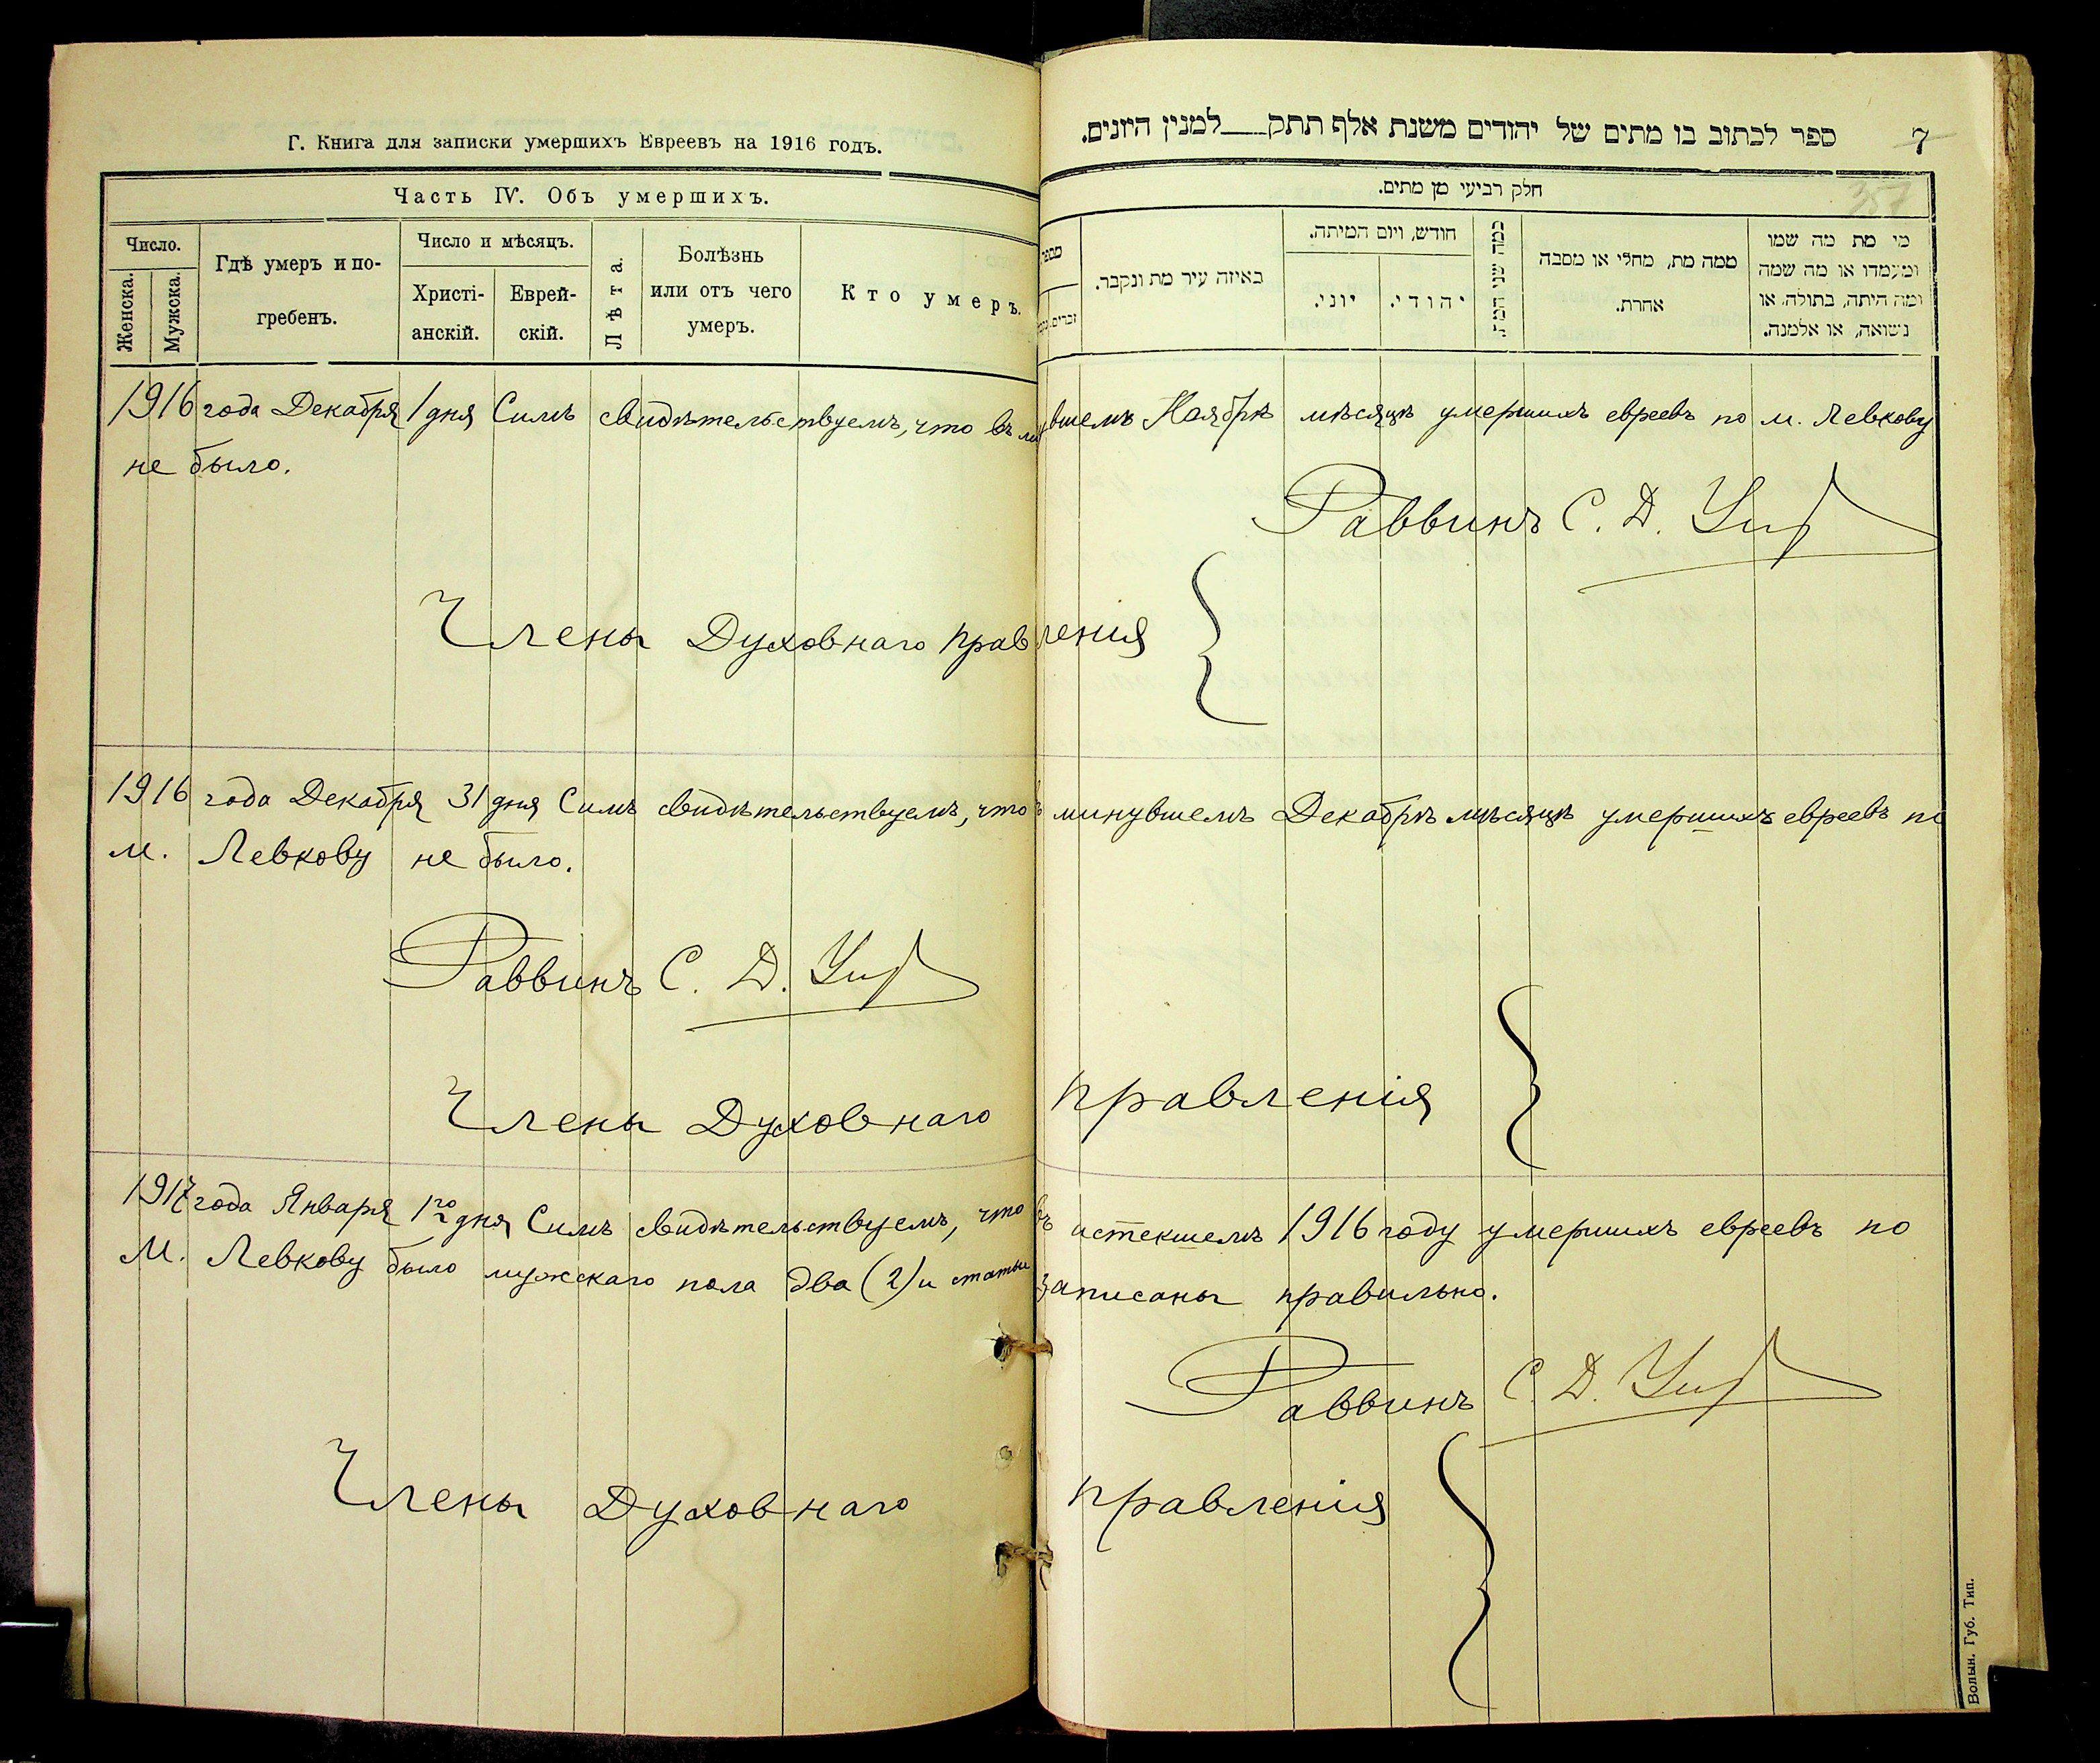 Г. Книга для записки умершихъ Евреевъ на 1916 годъ.
Часть IV. Объ умершихъ.
Число.
Женска.
Мужска.
Гдѣ умеръ и по-
гребенъ.
Число и мѣсяцъ.
Христі-
анскій.
Еврей-
скій.
Лѣта.
Болѣзнь
или отъ чего
умеръ.
Кто умеръ.
ספר לכתוב בו מתים של יהודים משנת אלף תתק למנין היונים.
7
357
חלק רביעי מן מתים.
מספר
זכרים.
באיזה עיר מת ונקבר.
חודש, ויום המיתה.
יוני.
יהודי.
כמה שני המת
ממה מת, מחלי או מסבה
אחרת.
מי מת מה שמו
ומעמדו או מה שמה
ומה היתה, בתולה, או
נשואה, או אלמנה.
1916 года Декабря 1 дня Симъ свидѣтельствуемъ, что въ минувшемъ Ноябрѣ мѣсяцѣ умершихъ евреевъ по м. Левкову
не было.
Раввинъ С. Д.
Члены Духовнаго правленія
1916 года Декабря 31 дня Симъ свидѣтельствуемъ, что въ минувшемъ Декабрѣ мѣсяцѣ умершихъ евреевъ по
м. Левкову не было.
Раввинъ С. Д.
Члены Духовнаго правленія
1917 года Января 1го дня Симъ свидѣтельствуемъ, что въ истекшемъ 1916 году умершихъ евреевъ по
м. Левкову было мужскаго пола два (2) и статьи записаны правильно.
Раввинъ С. Д.
Члены Духовнаго правленія
Волын. Губ. Тип.